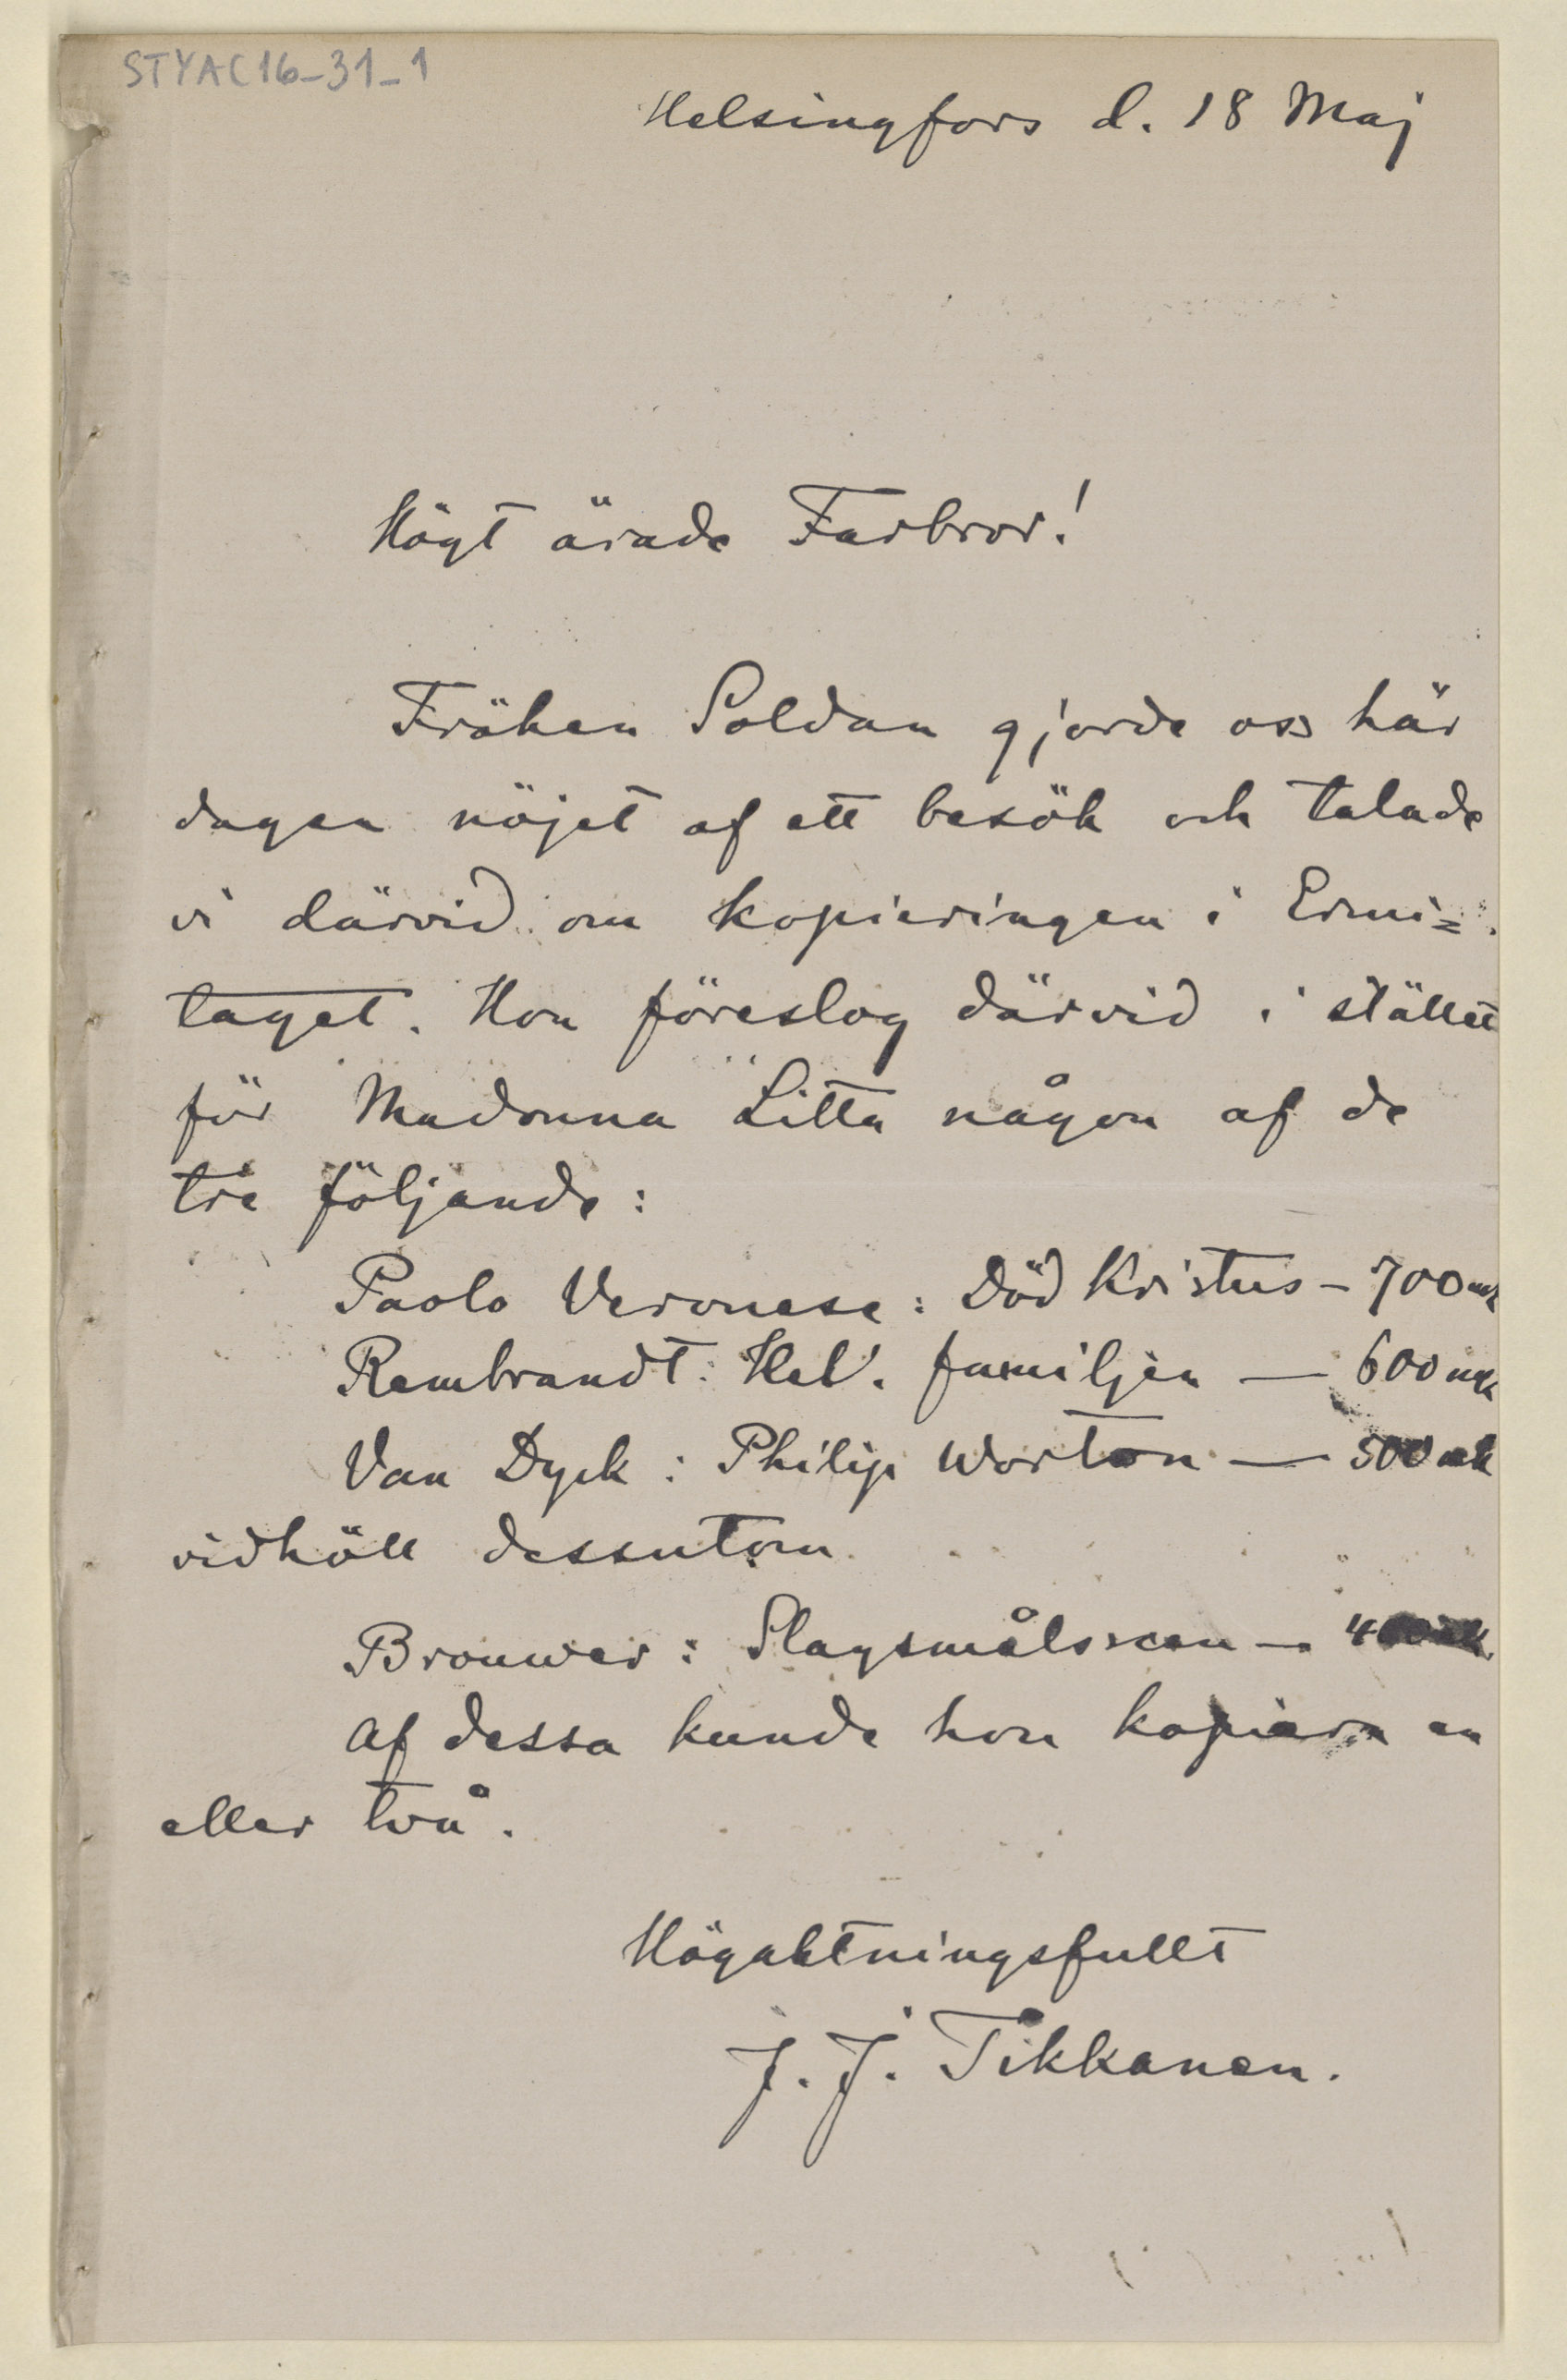 STYAC16-31-1
Helsingfors d. 18 Maj
Högt ärade Farbror!
Fröken Soldan gjorde oss här
dagen nöjet af ett besök och talade
vi därvid om kopieringen i Ermi=
taget. Hon föreslog därvid i stället
för Madonna Litta någon af de
tre följande:
Paolo Veronese: Död Kristus - 700 mk
Rembrandt: Hel. familjen — 600 mk
Van Dyck: Philip Worton — 500 mk
vidhöll dessutom
Brouwer: Slagsmålsscen — 400 mk.
Af dessa kunde hon kopiera en
eller två.
Högaktningsfullt
J. J. Tikkanen.